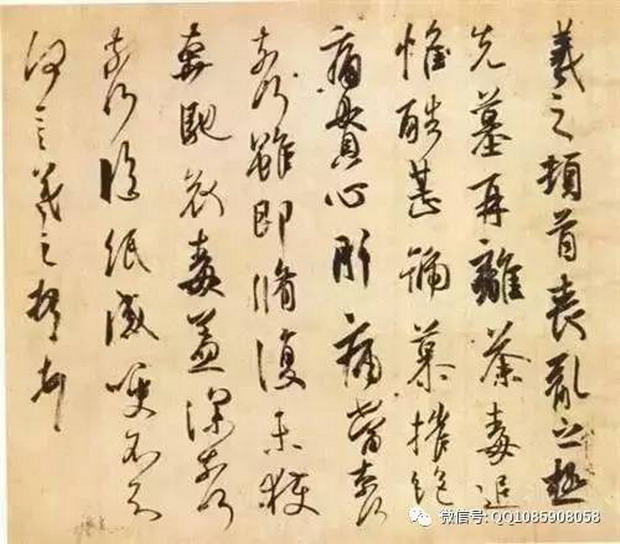 羲之頓首喪亂之極
先墓再離荼毒追
惟酷甚號慕摧絶
痛貫心肝痛當奈何
奈何雖即脩復未獲
奔馳哀毒益深奈何
奈何臨紙感哽不知
何言羲之頓首
微信号: QQ1085908058